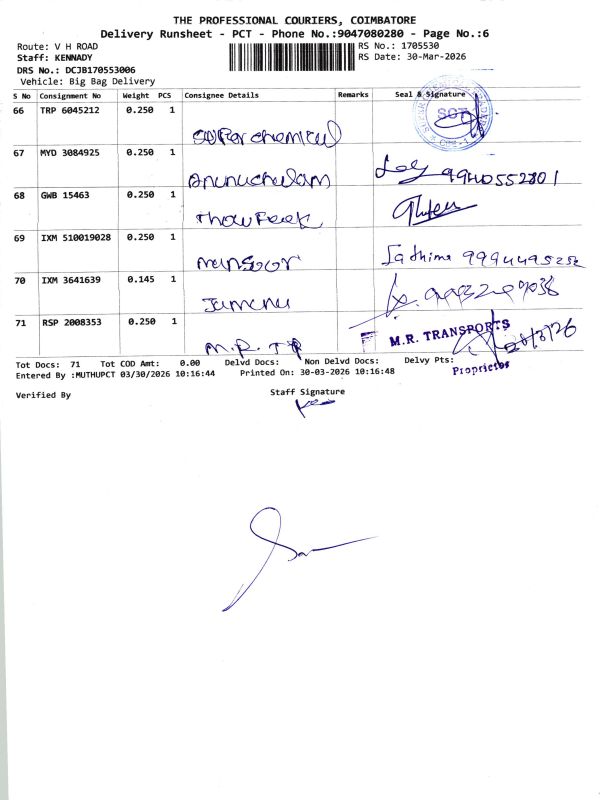 THE PROFESSIONAL COURIERS, COIMBATORE
Delivery Runsheet - PCT - Phone No.:9047080280 - Page No.:6
Route: V H ROAD
Staff: KENNADY
DRS No.: DCJB170553006
Vehicle: Big Bag Delivery
RS No.: 1705530
RS Date: 30-Mar-2026
S No Consignment No Weight PCS Consignee Details Remarks Seal & Signature
66 TRP 6045212 0.250 1
67 MYD 3084925 0.250 1
Arunuchulam 9940552801
68 GWB 15463 0.250 1
Thowfeek
69 IXM 510019028 0.250 1
Mansoor Fathima 9994495252
70 IXM 3641639 0.145 1
71 RSP 2008353 0.250 1
M.R. TRANSPORTS
M.R. TR
Proprietor
Tot Docs: 71 Tot COD Amt: 0.00 Delvd Docs: Non Delvd Docs: Delvy Pts:
Entered By :MUTHUPCT 03/30/2026 10:16:44 Printed On: 30-03-2026 10:16:48
Verified By Staff Signature